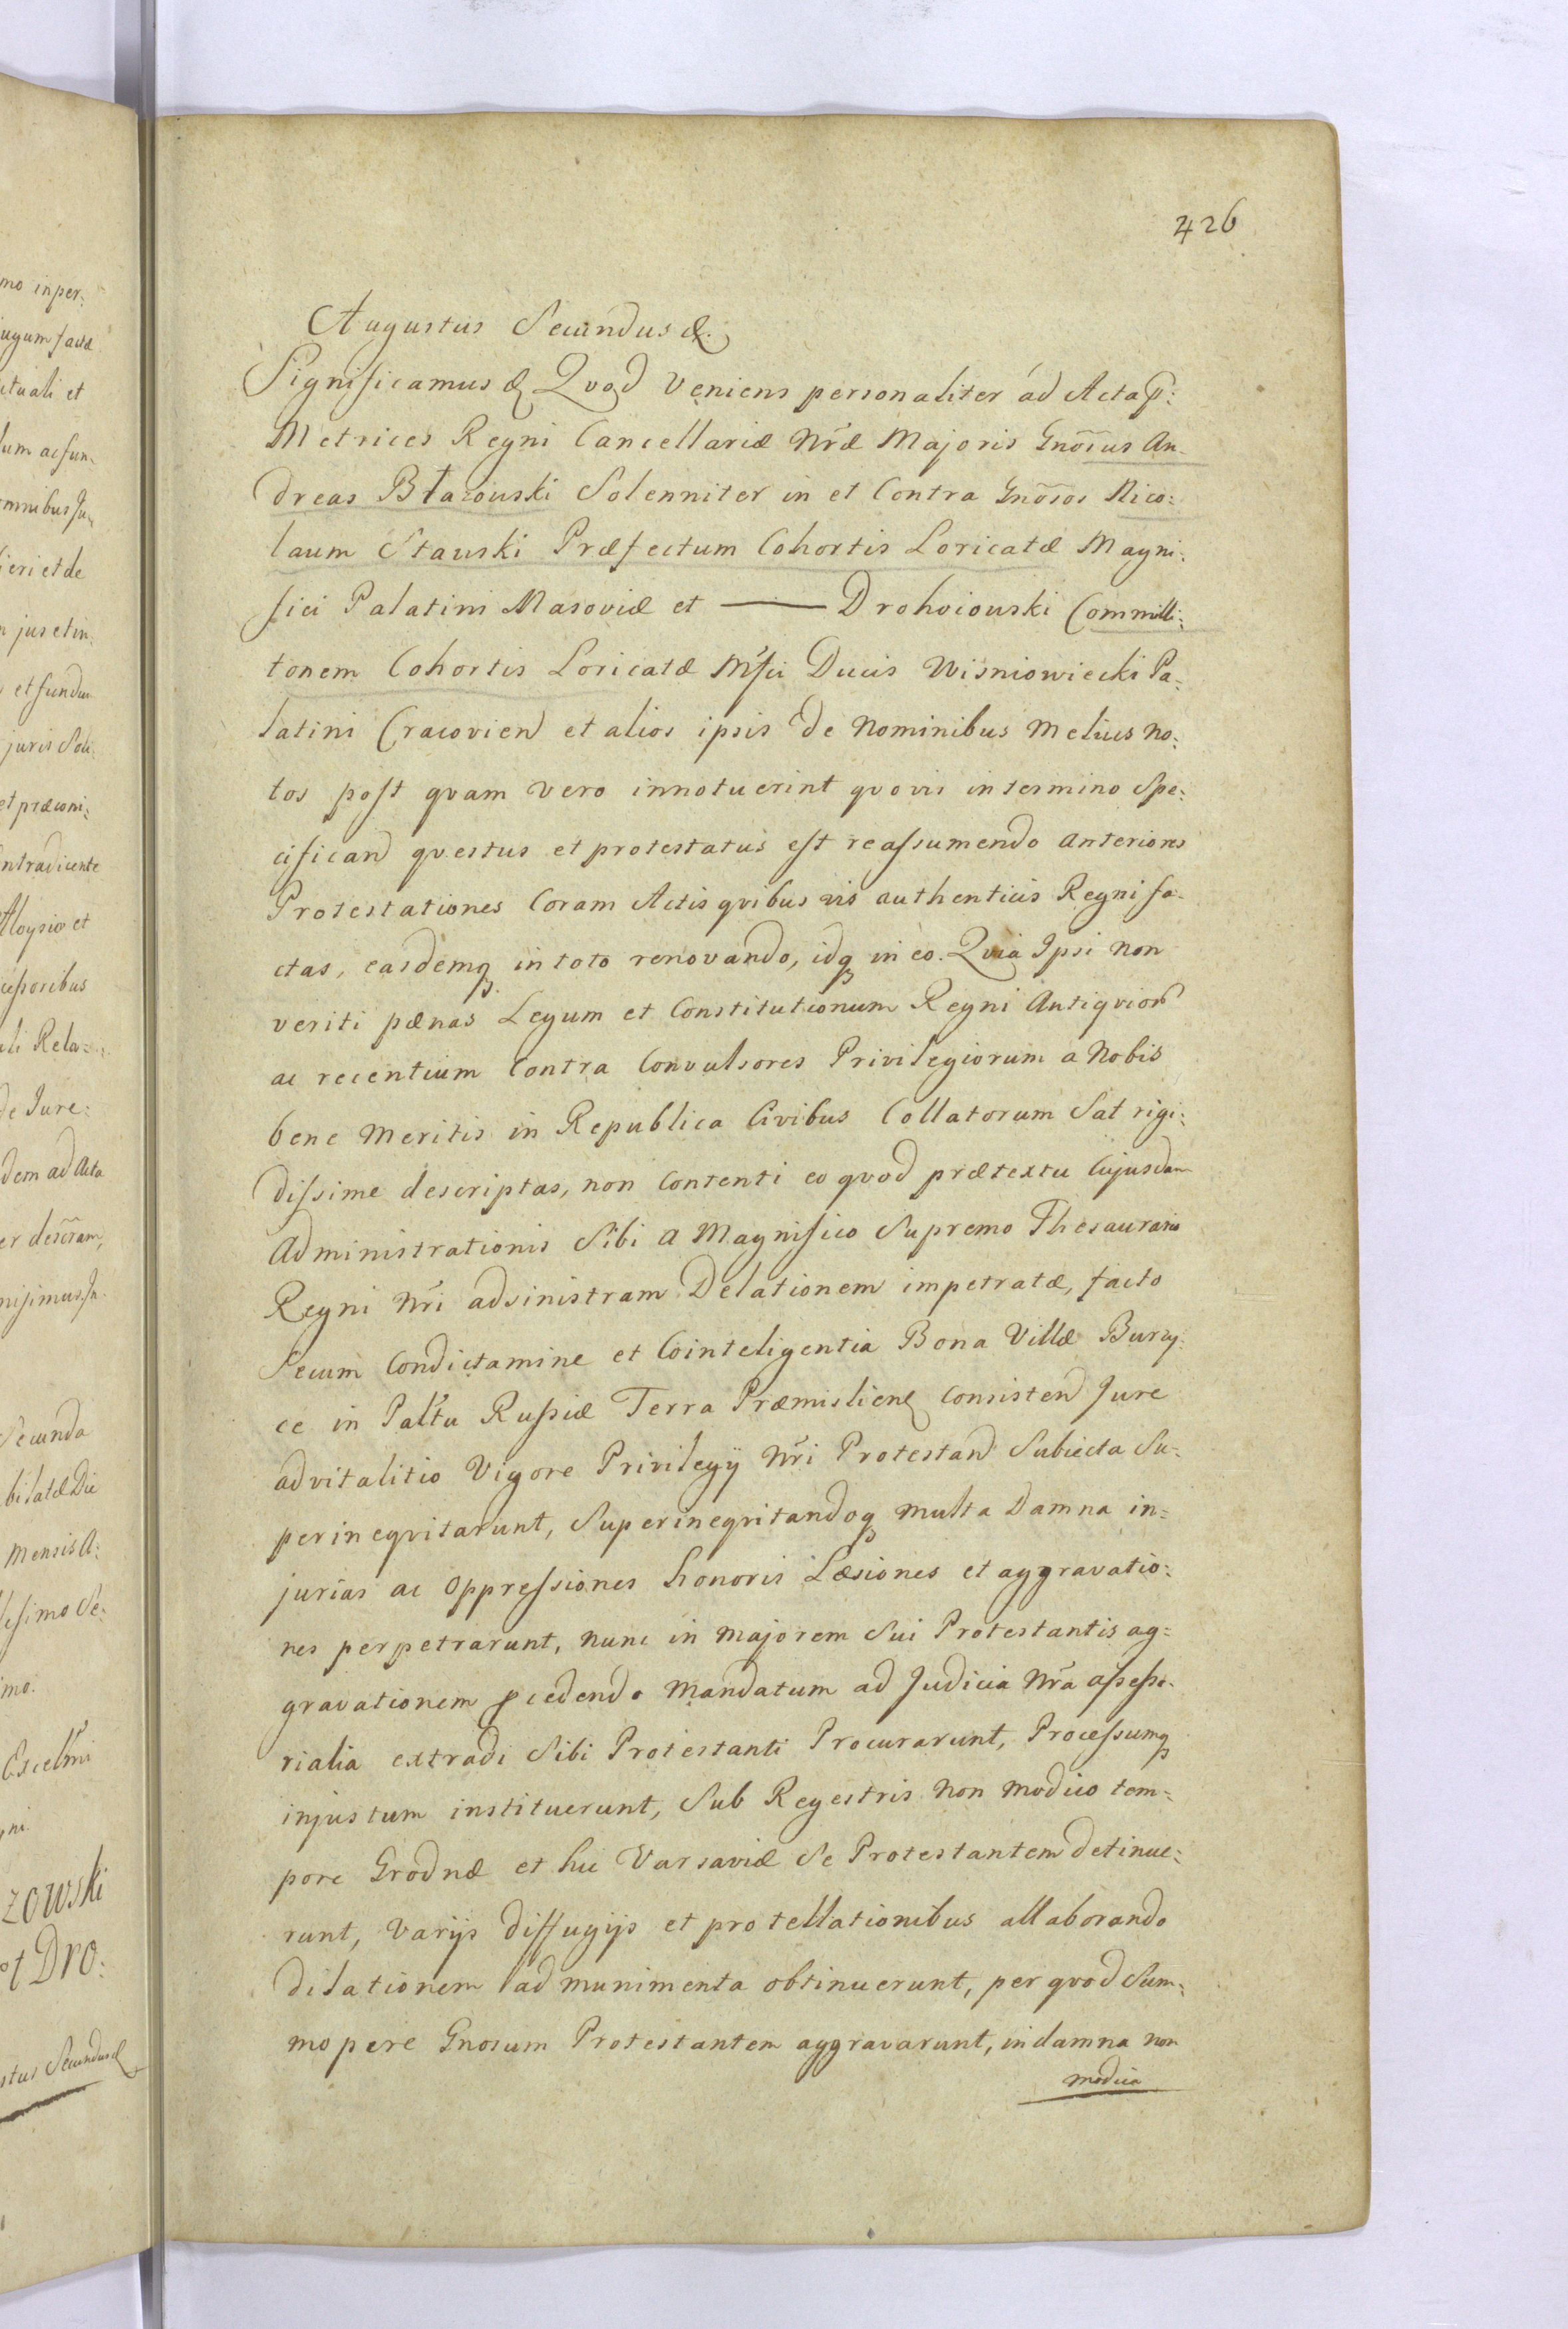 426
Augustus Secundus &.
Significamus & Qvod veniens personaliter ad Acta p̃:
Metrices Regni Cancellariæ Nr̃æ Majoris Gnõsus An-
dreas Błazowski Solenniter in et Contra Gnõsos Nico:
laum Stawski Præfectum Cohortis Loricatæ Magni:
fici Palatini Masoviæ et —— Drohoiowski Commili:
tonem Cohortis Loricatæ Mfci Ducis Wisniowiecki Pa:
latini Cracovien et alios ipsis de Nominibus Melius no:
tos post qvam vero innotuerint qvovis in termino Spe:
cificand qvestus et protestatus est reassumendo anteriores
Protestationes Coram Actis qvibus vis authenticis Regni fa-
ctas, easdemq in toto renovando, idq in eo. Qvia Ipsi non
veriti pænas Legum et Constitutionum Regni Antiqvior
ac recentium Contra Convulsores Privilegiorum a Nobis
bene Meritis in Republica Civibus Collatorum Sat rigi:
dissime descriptas, non Contenti eo qvod prætextu Cujusdam
Administrationis Sibi a Magnifico Supremo Thesaurario
Regni Nr̃i ad sinistram Delationem impetratæ, facto
Secum Condictamine et Cointeligentia Bona Villæ Burcy:
ce in Paltu Russiæ Terra Præmislien Consisten Jure
advitalitio Vigore Privilegij Nr̃i Protestan Subiecta Su:
perineqvitarunt, Superineqvitandoq multa Damna in=
jurias ac Oppressiones honoris Læsiones et aggravatio:
nes perpetrarunt, nunc in majorem Sui Protestantis ag=
gravationem pcedendo Mandatum ad Judicia Nr̃a assesso-
rialia extradi Sibi Protestanti Procurarunt, Processumq
injustum instituerunt, Sub Regestris non modico tem=
pore Grodnæ et hic Varsaviæ Se Protestantem detinue:
runt, varijs diffugijs et protellationibus allaborando
dilationem ad munimenta obtinuerunt, per qvod Sum:
mopere Gnosum Protestantem aggravarunt, in damna non
modica